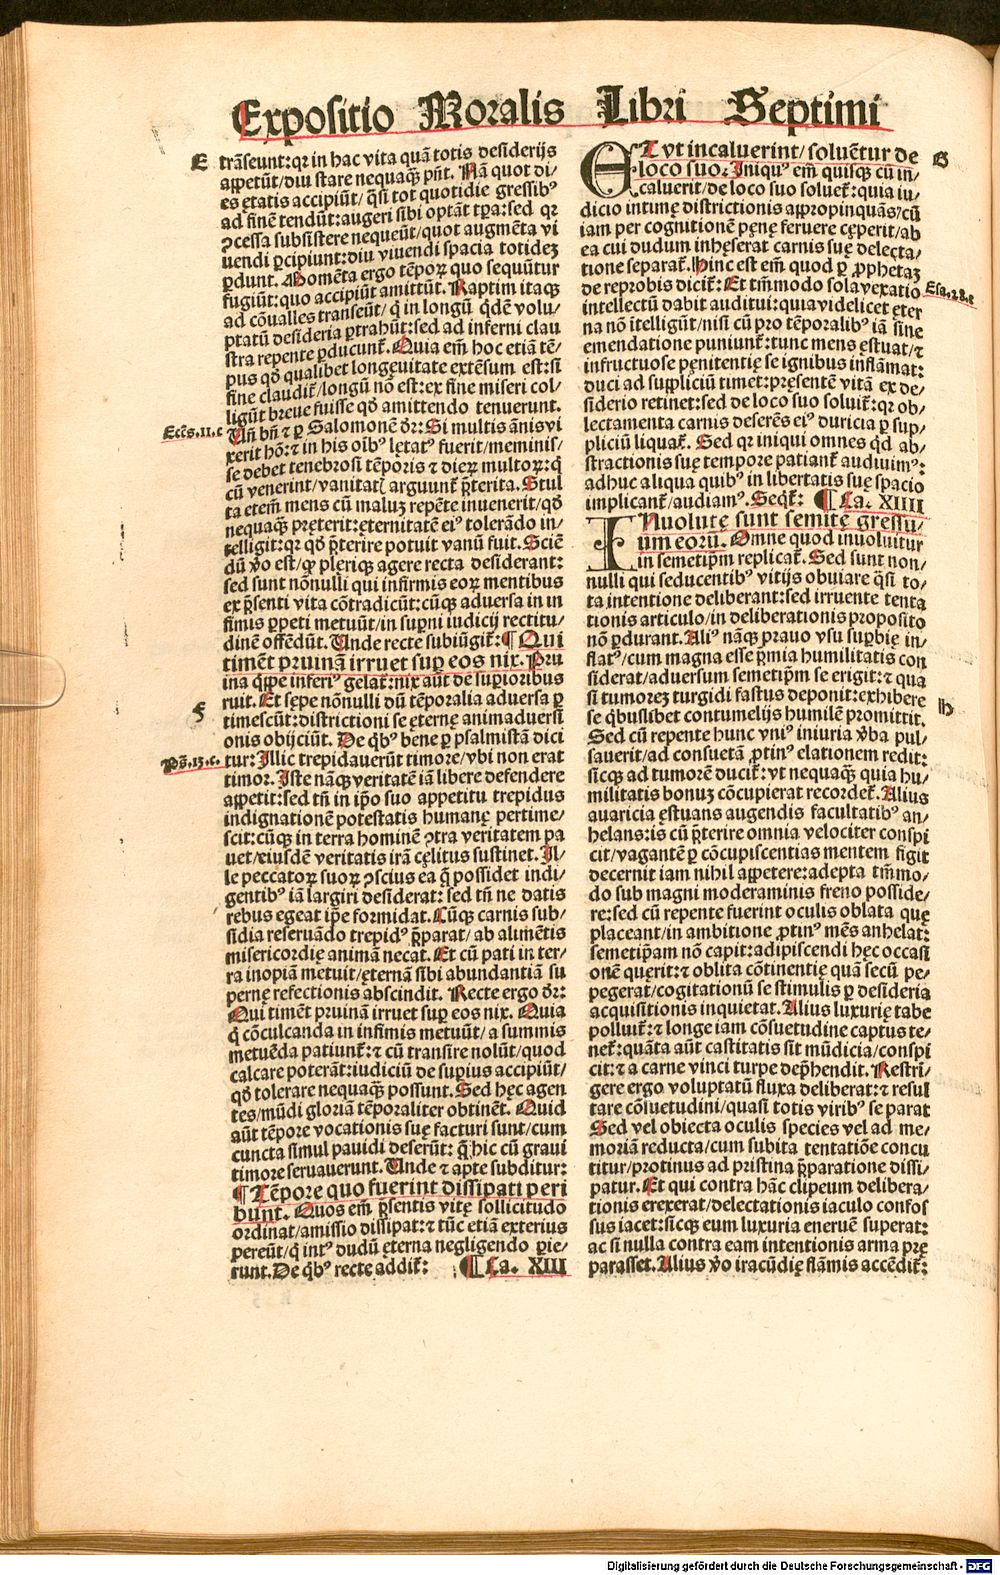 Expositio Moralis Libri Septimi
E
trãseunt: qꝛ in hac vita quã totis desiderijs
appetũt/diu stare nequaq̃ pñt. Nã quot di/
es ętatis accipiũt/ q̃si tot quotidie gressibꝰ
ad finẽ tendũt: augeri sibi optãt tꝑa: sed qꝛ
ꝯcessa subsistere nequeũt/quot augmẽta vi
uendi ꝑcipiunt: diu viuendi spacia totideꝫ
ꝑdunt. Momẽta ergo tẽpoꝝ quo sequũtur
fugiũt: quo accipiũt amittũt. Raptim itaqꝫ
ad cõualles transeũt/ q̇ in longũ q̇dẽ volu/
ptatũ desideria ꝑtrahũt: sed ad inferni clau
stra repente ꝑducunt᷑. Quia em̃ hoc etiã tẽ/
pus qḋ qualibet longęuitate extẽsum est: si
fine claudit᷑/longũ nõ est: ex fine miseri col/
ligũt breue fuisse qḋ amittendo tenuerunt.
Eccs̃. 11. c
Vñ bñ ⁊ ꝑ Salomonẽ dr̃: Si multis ãnis vi
xerit hõ: ⁊ in his oĩbꝰ lętatꝰ fuerit/meminis/
se debet tenebrosi tẽporis ⁊ dieꝝ multoꝝ: q̇
cũ venerint/vanitatꝭ arguunt᷑ p̃terita. Stul
ta etem̃ mens cũ maluꝫ repẽte inuenerit/qḋ
nequaq̃ pręterit: ęternitatẽ eiꝰ tolerãdo in/
telligit: qꝛ qḋ p̃terire potuit vanũ fuit. Sciẽ
dũ ṽo est/ꝙ pleriqꝫ agere recta desiderant:
sed sunt nõnulli qui infirmis eoꝝ mentibus
ex p̃senti vita cõtradicũt: cũqꝫ aduersa in in
fimis ꝑpeti metuũt/in supni iudicij rectitu/
dinẽ offẽdũt. Unde recte subiũgit᷑: ¶ Qui
timẽt pruinã irruet suꝑ eos nix. Pru
ina q̇ppe inferiꝰ gelat᷑: nix aũt de suꝑioribus
ruit. Et sępe nõnulli dũ tẽporalia aduersa ꝑ
F
timescũt: districtioni se ęternę animaduersi
onis obijciũt. De q̇bꝰ bene ꝑ psalmistã dici
Ps̃. 13. c.
tur: Illic trepidauerũt timore/vbi non erat
timor. Iste nãqꝫ veritatẽ iã libere defendere
appetit: sed tñ in ip̃o suo appetitu trepidus
indignationẽ potestatis humanę pertime/
scit: cũqꝫ in terra hominẽ ꝯtra veritatem pa
uet/eiusdẽ veritatis irã cęlitus sustinet. Il/
le peccatoꝝ suoꝝ ꝯscius ea q̃ possidet indi/
gentibꝰ iã largiri desiderat: sed tñ ne datis
rebus egeat ip̃e formidat. Cũqꝫ carnis sub/
sidia reseruãdo trepidꝰ p̃parat/ ab alimẽtis
misericordię animã necat. Et cũ pati in ter/
ra inopiã metuit/ęternã sibi abundantiã su
pernę refectionis abscindit. Recte ergo dr̃:
Qui timẽt pruinã irruet suꝑ eos nix. Quia
q̇ cõculcanda in infimis metuũt/ a summis
metuẽda patiunt᷑: ⁊ cũ transire nolũt/quod
calcare poterãt: iudiciũ de supius accipiũt/
qḋ tolerare nequaq̃ possunt. Sed hęc agen
tes/mũdi gloriã tẽporaliter obtinẽt. Quid
aũt tẽpore vocationis suę facturi sunt/cum
cuncta simul pauidi deserũt: q̃ hic cũ graui
timore seruauerunt. Unde ⁊ apte subditur:
¶ Tẽpore quo fuerint dissipati peri
bunt. Quos em̃ p̃sentis vitę sollicitudo
ordinat/amissio dissipat: ⁊ tũc etiã exterius
pereũt/q̇ intꝰ dudũ ęterna negligendo ꝑie/
runt. De q̇bꝰ recte addit᷑: ¶ Ca. XIII
G
ET vt incaluerint/ soluẽtur de
loco suo. Iniquꝰ em̃ quisqꝫ cũ in/
caluerit/de loco suo soluet᷑: quia iu/
dicio intimę districtionis appropinquãs/cũ
iam per cognitionẽ pęnę feruere cęperit/ab
ea cui dudum inhęserat carnis suę delecta/
tione separat᷑. Hinc est em̃ quod ꝑ ꝓphetaꝫ
de reprobis dicit᷑: Et tm̃modo sola vexatio
Esa. 28. e
intellectũ dabit auditui: quia videlicet eter
na nõ ĩtelligũt/nisi cũ pro tẽporalibꝰ iã sine
emendatione puniunt᷑: tunc mens ęstuat/⁊
infructuose pęnitentię se ignibus inflãmat:
duci ad suppliciũ timet: pręsentẽ vitã ex de/
siderio retinet: sed de loco suo soluit᷑: qꝛ ob/
lectamenta carnis deserẽs eiꝰ duricia ꝑ sup/
pliciũ liquat᷑. Sed qꝛ iniqui omnes q̇d ab/
stractionis suę tempore patiant᷑ audiuimꝰ:
adhuc aliqua quibꝰ in libertatis suę spacio
implicant᷑/audiamꝰ. Seqt᷑: ¶ Ca. XIIII
INuolutę sunt semitę gressu/
um eorũ. Omne quod inuoluitur
in semetip̃m replicat᷑. Sed sunt non/
nulli qui seducentibꝰ vitijs obuiare q̃si to/
ta intentione deliberant: sed irruente tenta
tionis articulo/in deliberationis proposito
nõ ꝑdurant. Aliꝰ nãqꝫ prauo vsu supbię in/
flatꝰ/cum magna esse p̃mia humilitatis con
siderat/aduersum semetip̃m se erigit: ⁊ qua
si tumoreꝫ turgidi fastus deponit: exhibere
H
se q̇buslibet contumelijs humilẽ promittit.
Sed cũ repente hunc vniꝰ iniuria ṽba pul/
sauerit/ad consuetã ꝓtinꝰ elationem redit:
sicqꝫ ad tumorẽ ducit᷑: vt nequaq̃ quia hu/
militatis bonuꝫ cõcupierat recordet᷑. Alius
auaricia ęstuans augendis facultatibꝰ an/
helans: is cũ p̃terire omnia velociter conspi
cit/vagantẽ ꝑ cõcupiscentias mentem figit
decernit iam nihil appetere: adepta tm̃mo/
do sub magni moderaminis freno posside/
re: sed cũ repente fuerint oculis oblata quę
placeant/in ambitione ꝓtinꝰ mẽs anhelat:
semetip̃am nõ capit: adipiscendi hęc occasi
onẽ querit: ⁊ oblita cõtinentię quã secũ pe/
pegerat/cogitationũ se stimulis ꝑ desideria
acquisitionis inquietat. Alius luxurię tabe
polluit᷑: ⁊ longe iam cõsuetudine captus te/
net᷑: quãta aũt castitatis sit mũdicia/conspi
cit: ⁊ a carne vinci turpe dep̃hendit. Restri/
gere ergo voluptatũ fluxa deliberat: ⁊ resul
tare cõsuetudini/quasi totis viribꝰ se parat
Sed vel obiecta oculis species vel ad me/
moriã reducta/cum subita tentatiõe concu
titur/protinus ad pristina p̃paratione dissi/
patur. Et qui contra hãc clipeum delibera/
tionis erexerat/delectationis iaculo confos
sus iacet: sicqꝫ eum luxuria eneruẽ superat:
ac si nulla contra eam intentionis arma prę
parasset. Alius ṽo iracũdię flãmis accẽdit᷑:
Digitalisierung gefördert durch die Deutsche Forschungsgemeinschaft - DFG